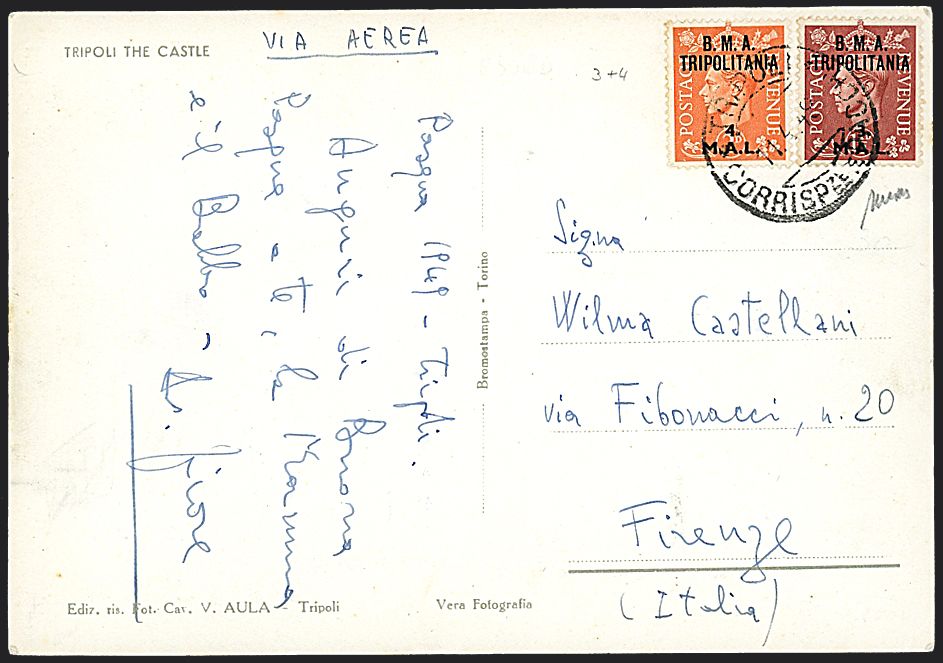 TRIPOLI THE CASTLE
VIA AEREA
3+4
B.M.A.
TRIPOLITANIA
POSTAGE REVENUE
4
M.A.L.
B.M.A.
TRIPOLITANIA
POSTAGE REVENUE
3
M.A.L.
CORRISPZE
Pasqua 1949 - Tripoli.
Auguri di Buona
Pasqua a te, la Mamma
e il Babbo -
Fiore
Bromostampa - Torino
Sig.na
Wilma Castellani
via Fibonacci, n. 20
Firenze
(Italia)
Ediz. ris. Fot. Cav. V. AULA - Tripoli
Vera Fotografia